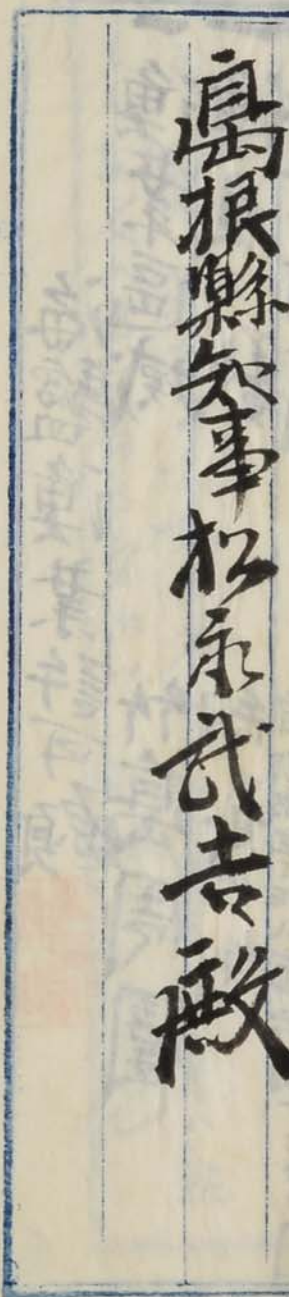 島根縣知事松永武吉殿